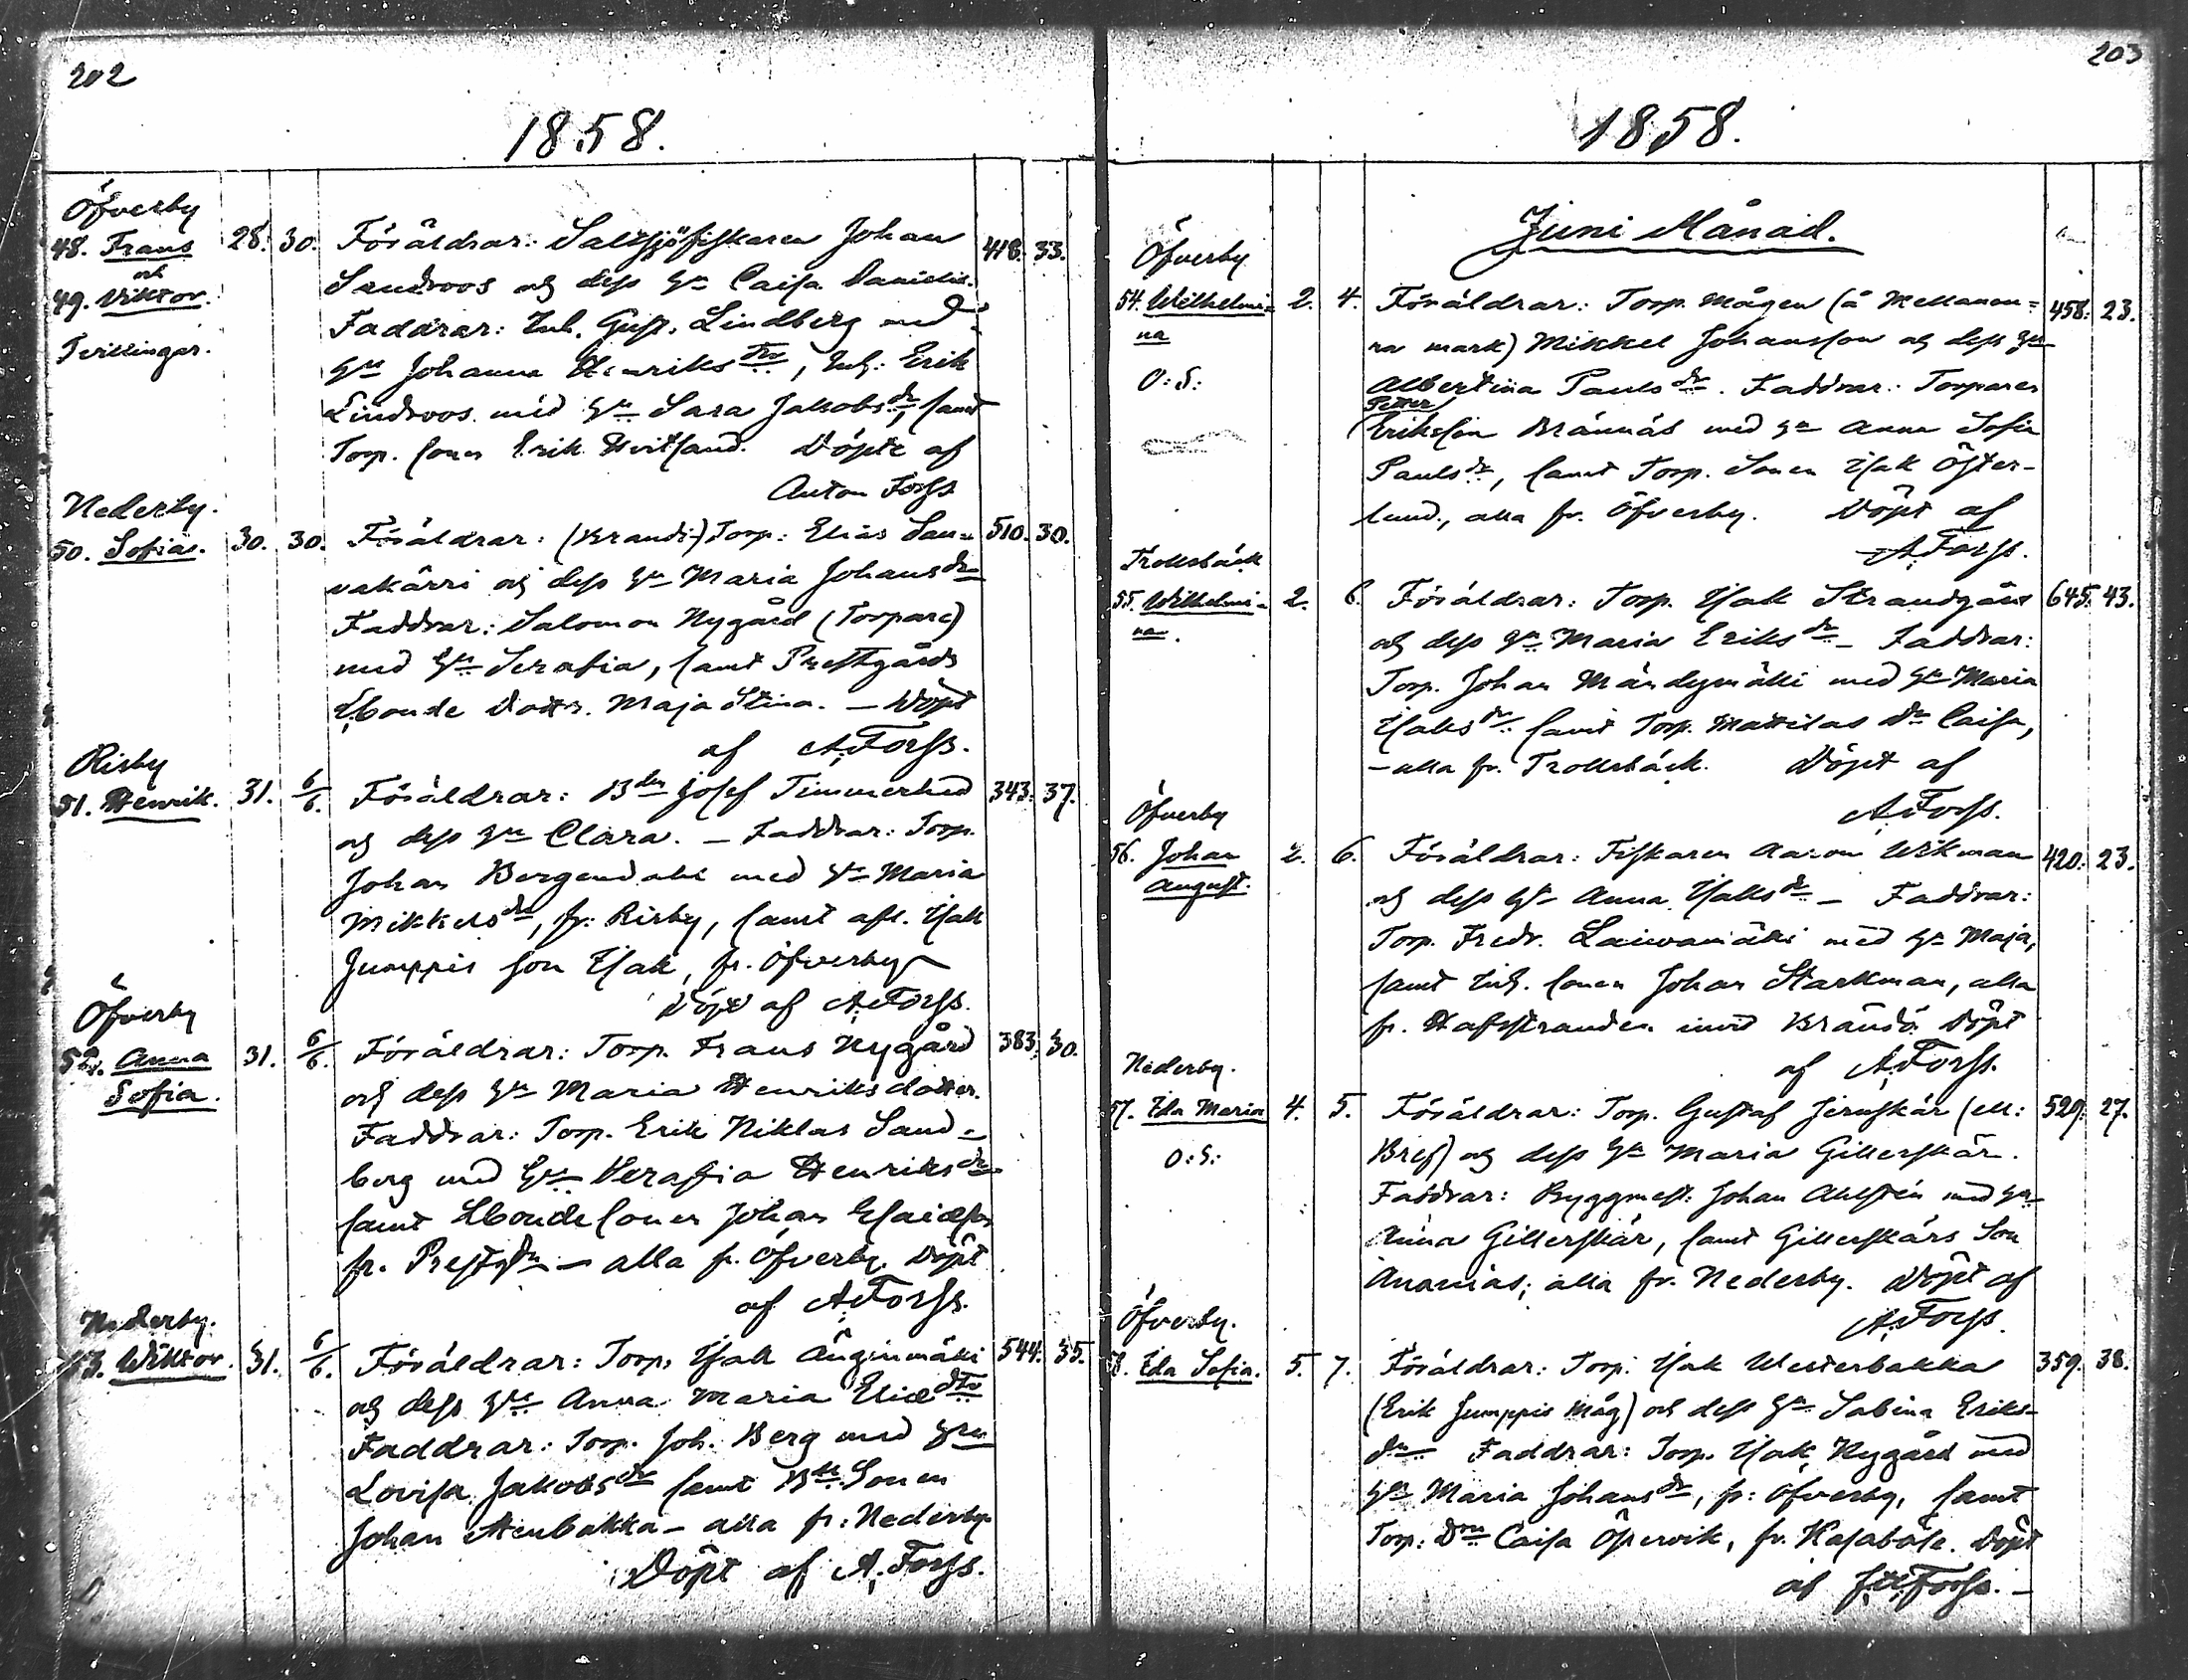 202
1858.
Öfverby
48. Frans 28. 30. Föräldrar: Saltsjöfiskaren Johan 418. 33.
och
49. Viktor.
Tvillingar.
Sandroos och dess hu Caisa Danielsd.
Faddrar: Inh. Gust. Lindberg med
hu Johanna Henriksdtr, Inh. Erik
Lindroos med hu Sara Jakobsdr, samt
Torp. sonen Erik Hvitsand. Döpte af
Anton Forss
Nederby.
50. Sofia. 30. 30. Föräldrar: (Brandi-) Torp: Elias San- 510. 30.
vakärri och dess hu Maria Johansdr
Faddrar: Salomon Nygård (Torpare)
med hu Serafia, samt Prestgårds
Lbonde dottr. Maja Stina. — Döpt
af A. Forss.
Risby
51. Henrik. 31. 6/6. Föräldrar: Bden Josef Timmerhed 343. 37.
och dess hu Clara. — Faddrar: Torp.
Johan Bergendahl med hu Maria
Mikkelsdr, fr. Risby, samt afl. Isak
Jumppis son Isak, fr. Öfverby
Döpt af A. Forss.
Öfverby
52. Anna 31. 6/6. Föräldrar: Torp. Frans Nygård 383. 30.
Sofia.
och dess hu Maria Henriksdotter.
Faddrar: Torp. Erik Niklas Sand-
berg med hu Serafia Henriksdr
samt Lbondesonen Johan Esaiæson
fr. Prestgdn — alla fr. Öfverby. Döpt
af A. Forss.
Nederby.
53. Wiktor. 31. 6/6. Föräldrar: Torp. Isak Änginmäki 544. 35.
och dess hu Anna Maria Eliædtr
Faddrar: Torp. Joh. Berg med hu
Lovisa Jakobsdr samt Bde Sonen
Johan Aenbakka — alla fr: Nederby.
Döpt af A. Forss.
203
1858.
Juni Månad.
Öfverby
54. Wilhelmi- 2. 4. Föräldrar: Torp. Mågen (å Mellanon- 458. 23.
na
O: S:
ra mark) Mikkel Johansson och dess hu
Albertina Paulsdr. Faddrar: Torparen
Petter
Eriksson Brännäs med hu Anna Sofia
Paulsdr, samt Torp. Sonen Isak Öster-
lund, alla fr. Öfverby. Döpt af
A. Forss.
Trollsbäck
55. Wilhelmi- 2. 6. Föräldrar: Torp. Isak Strandgård 645. 43.
na.
och dess hu Maria Eriksdr — Faddrar:
Torp. Johan Mändymäki med hu Maria
Isaksdr samt Torp. Mattilas dr Caisa,
— alla fr. Trollsbäck. Döpt af
A. Forss.
Öfverby
56. Johan 2. 6. Föräldrar: Fiskaren Aaron Wikman 420. 23.
August.
och dess hu Anna Isaksdr — Faddrar:
Torp. Fredr. Laiwamäki med hu Maja,
samt Inh. sonen Johan Starkman, alla
fr. Hafsstranden invid Brändö Döpt
af A. Forss.
Nederby.
57. Ida Maria 4. 5. Föräldrar: Torp. Gustaf Jernskär (ell: 529. 27.
O: S:
Bref) och dess hu Maria Gillerskär.
Faddrar: Byggmest: Johan Ahlstén med hu
Anna Gillerskär, samt Gillerskärs Son
Ananias, alla fr. Nederby. Döpt af
A. Forss.
Öfverby.
58. Ida Sofia. 5. 7. Föräldrar: Torp. Isak Westerbakka 359. 38.
(Erik Jumppis Måg) och dess hu Sabina Eriks-
dr Faddrar: Torp. Isak Nygård med
hu Maria Johansdr, fr: Öfverby, samt
Torp: Dtrn Caisa Öpervik, fr. Hasaböle. Döpt
af Forss. —